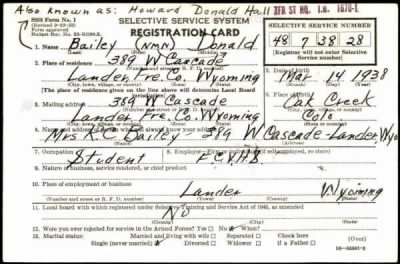 Also known as: Howard Donald Hall XFR ST HQ. 1.B. 1670-1
SSS Form No. 1
(Revised 6-9-48)
Form approved
SELECTIVE SERVICE SYSTEM
REGISTRATION CARD
SELECTIVE SERVICE NUMBER
48 7 38 28
(Registrar will not enter Selective Service number)
1. Name Bailey (NMN) Donald
2. Place of residence 389 W Cascade
Lander, Fre. Co. Wyoming
Mar 14 1938
[The place of residence given on the line above will determine Local Board
3. Mailing address 389 W Cascade
Lander, Fre. Co. Wyoming
Oak Creek
Colo.
4. Name and address of person who will always know your address
Mrs K.C. Bailey - 389 W Cascade - Lander, Wyo
7. Occupation Student
F.C.V.H.S.
9. Nature of business, service rendered, or chief product
10. Place of employment or business Lander Wyoming
(Number and street or R. F. D. number) (City) (County) (State)
11. Local board with which registered under Selective Training and Service Act of 1940, as amended
No
12. Were you ever rejected for service in the Armed Forces? Yes No When?
13. Marital status: Married and living with wife Separated Check here
Single (never married) Divorced Widower if a Father